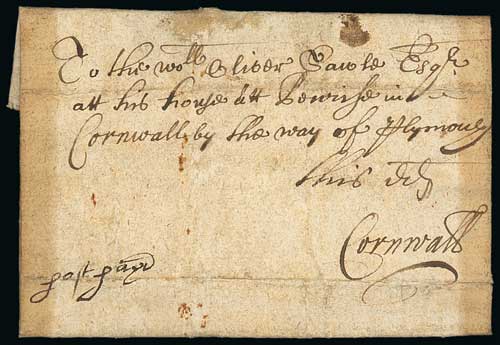 To the woll Oliver Sawle Esqr
att his house att Penrise in
Cornwall by the way of Plymouth
this dd
Cornwall
post payd